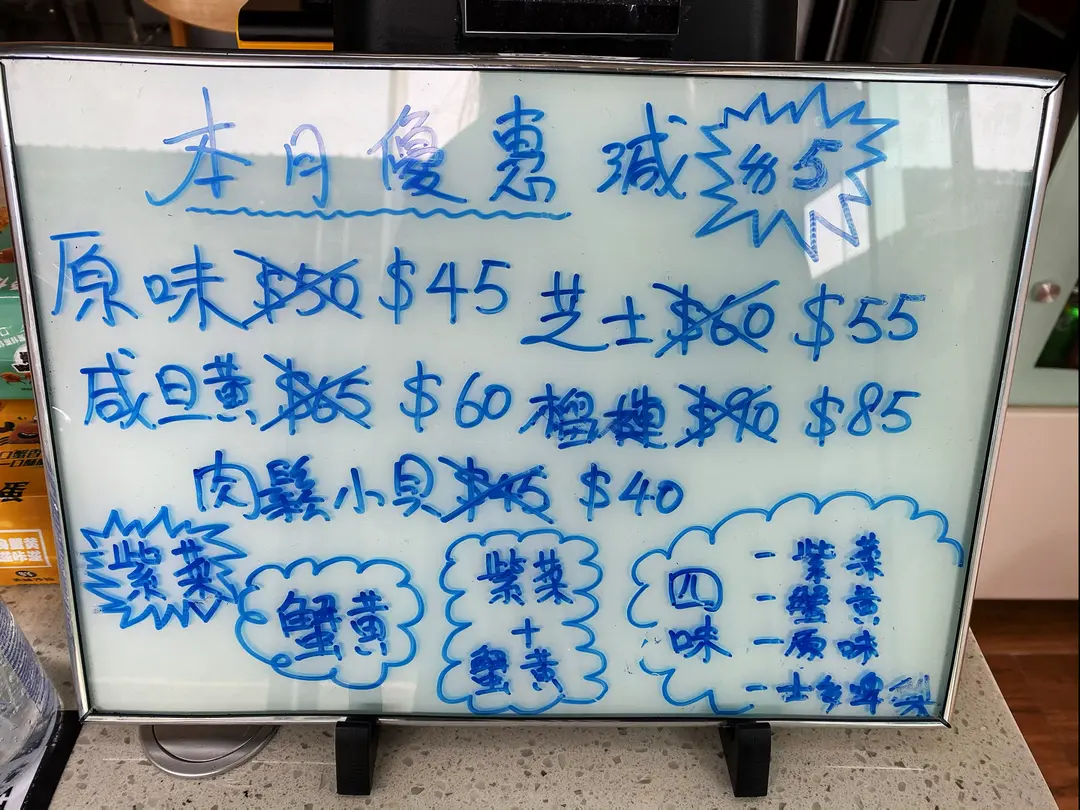 本月優惠 減 $5
原味 $50 $45 芝士 $60 $55
咸旦黃 $65 $60 榴槤 $90 $85
肉鬆小貝 $45 $40
紫菜
蟹黃
紫菜
+
蟹黃
四味
- 紫菜
- 蟹黃
- 原味
- 士多啤梨